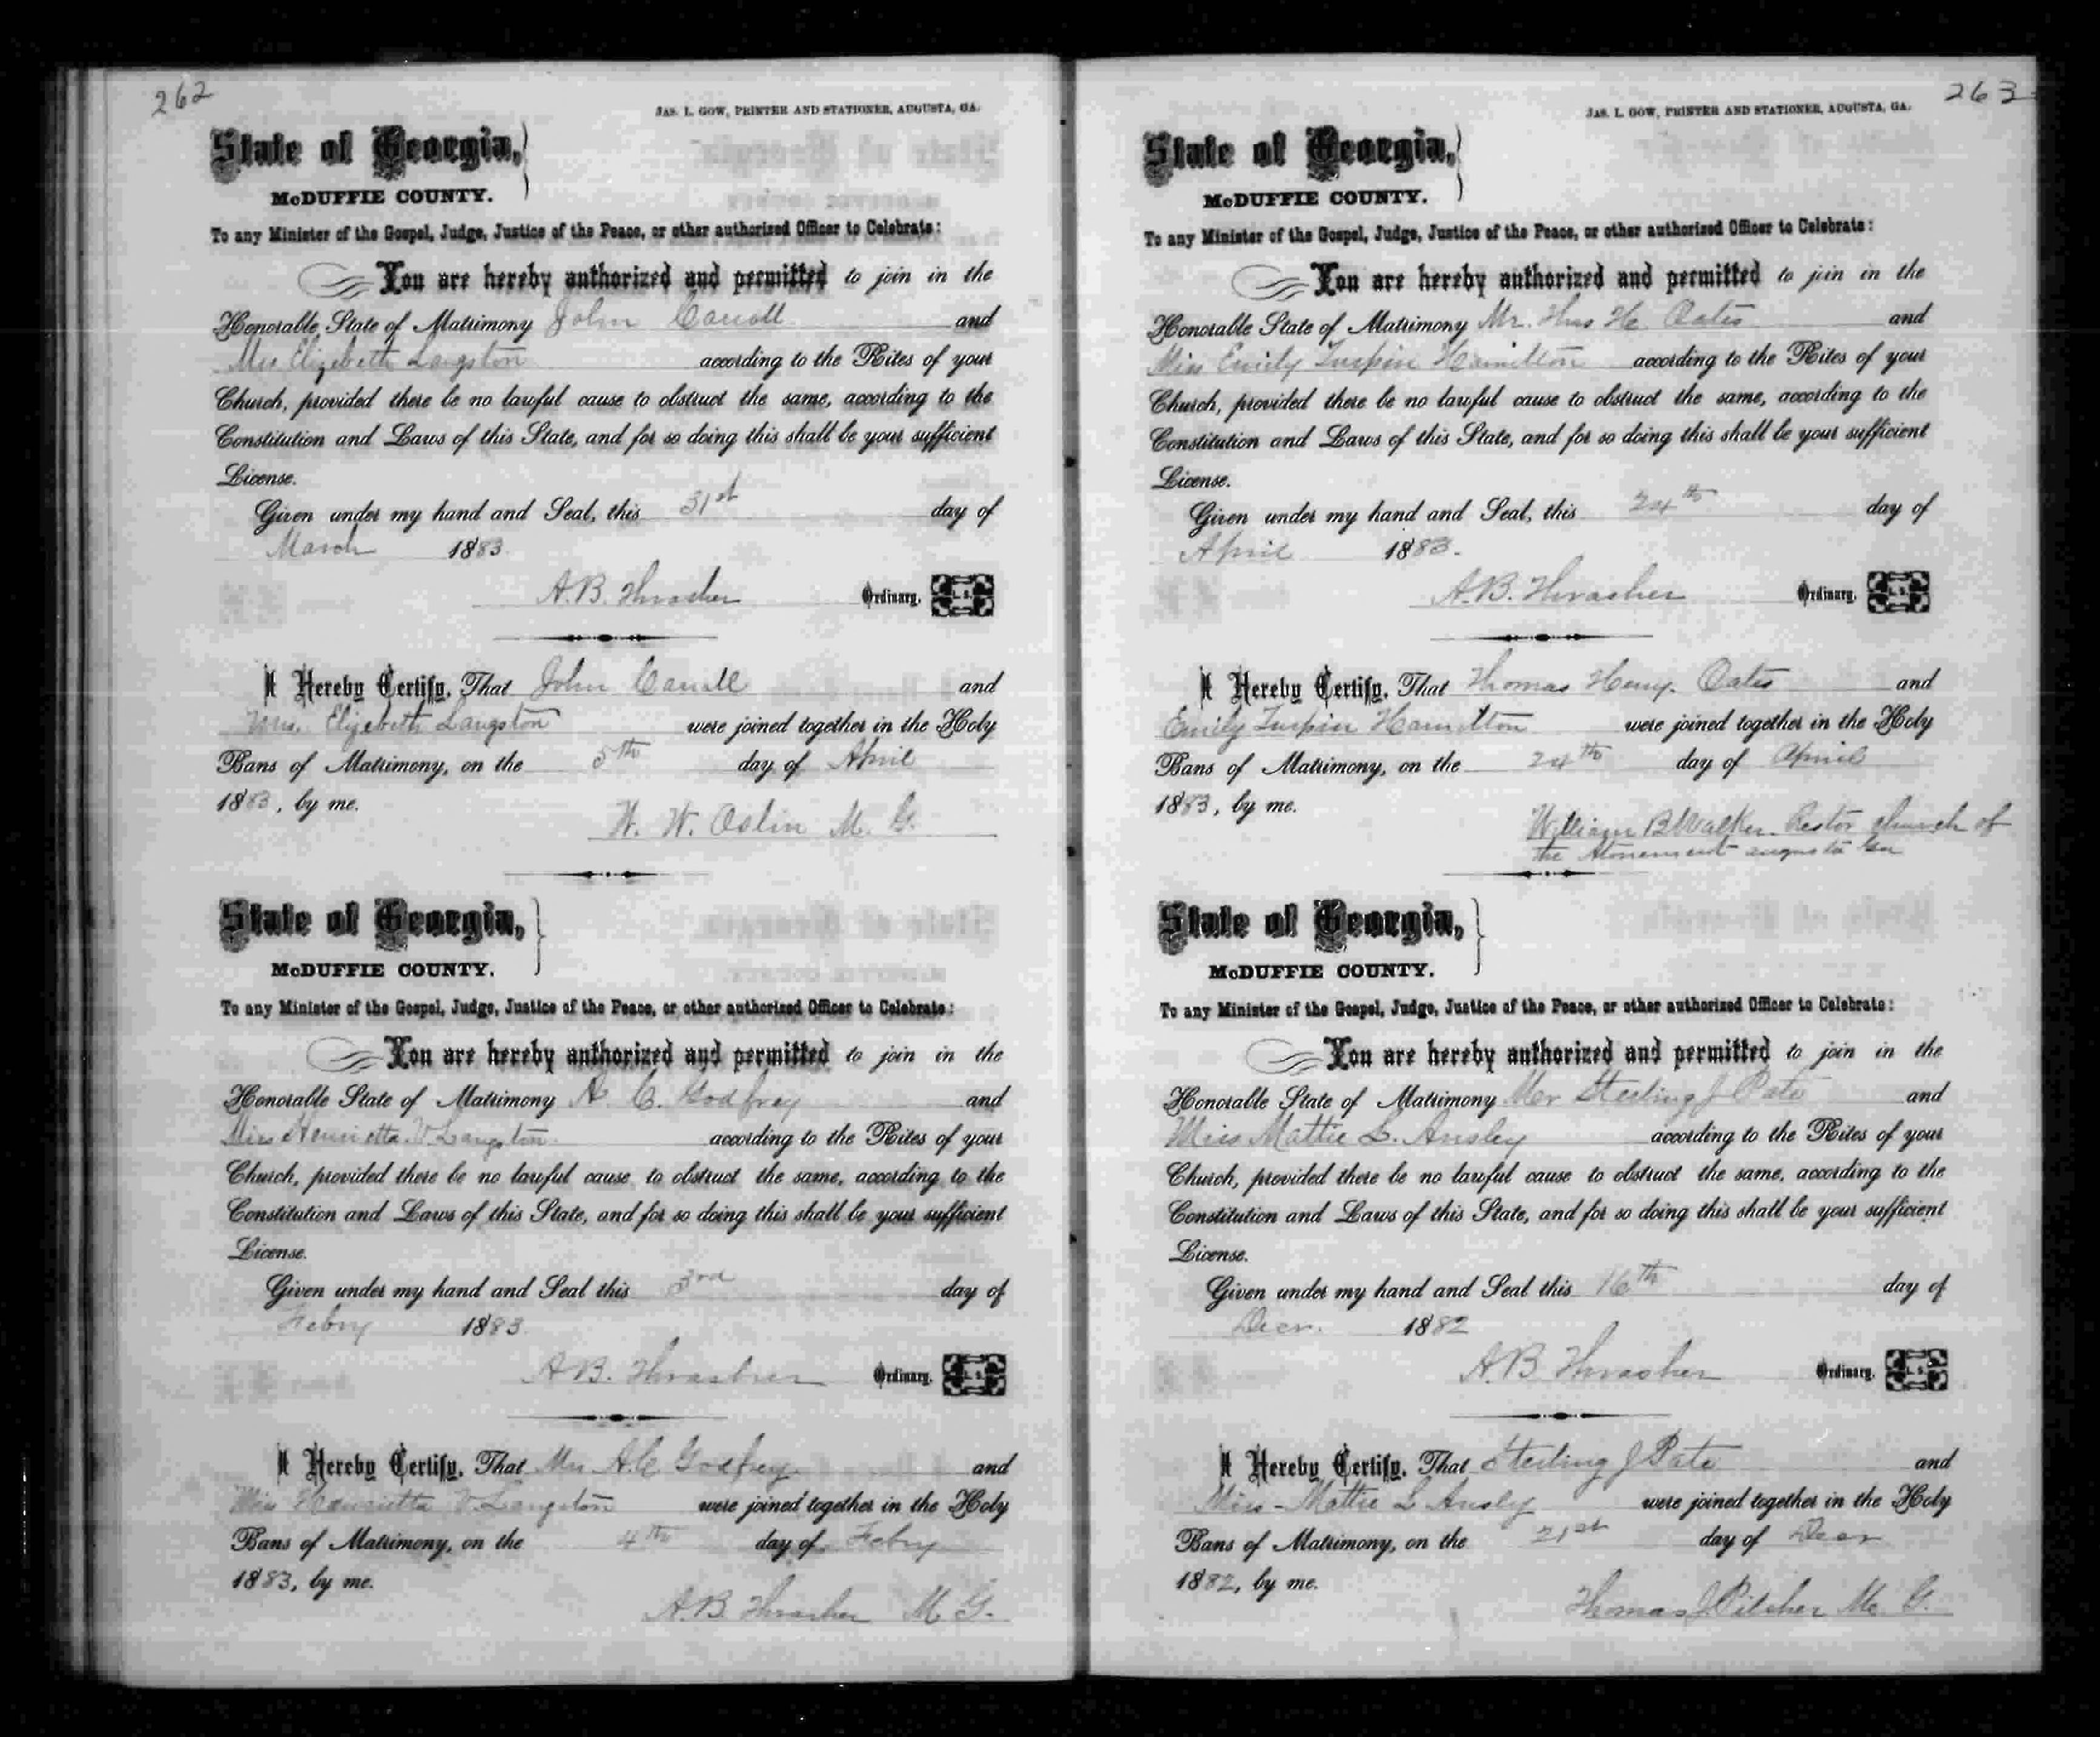 262
JAS. L. GOW, PRINTER AND STATIONER, AUGUSTA, GA.
State of Georgia,
McDUFFIE COUNTY.
To any Minister of the Gospel, Judge, Justice of the Peace, or other authorized Officer to Celebrate:
You are hereby authorized and permitted to join in the
Honorable State of Matrimony John Carroll and
Mrs Elizebeth Langston according to the Rites of your
Church, provided there be no lawful cause to obstruct the same, according to the
Constitution and Laws of this State, and for so doing this shall be your sufficient
License.
Given under my hand and Seal, this 31st day of
March 1883
A.B. Thrasher Ordinary. L.S.
I Hereby Certify, That John and
Mrs. Elizebeth Langston were joined together in the Holy
Bans of Matrimony, on the 5th day of April
1883, by me.
W. W. Oslin M. G.
State of Georgia,
McDUFFIE COUNTY.
To any Minister of the Gospel, Judge, Justice of the Peace, or other authorized Officer to Celebrate:
You are hereby authorized and permitted to join in the
Honorable State of Matrimony A. C. Godfrey and
Miss Henrietta V Langston according to the Rites of your
Church, provided there be no lawful cause to obstruct the same, according to the
Constitution and Laws of this State, and for so doing this shall be your sufficient
License.
Given under my hand and Seal this 3rd day of
Febry 1883
A.B. Thrasher Ordinary. L.S.
I Hereby Certify, That Mr A.C. Godfrey and
Miss Henrietta V. Langston were joined together in the Holy
Bans of Matrimony, on the 4th day of Febry
1883, by me.
A.B. Thrasher M. G.
263
JAS. L. GOW, PRINTER AND STATIONER, AUGUSTA, GA.
State of Georgia,
McDUFFIE COUNTY.
To any Minister of the Gospel, Judge, Justice of the Peace, or other authorized Officer to Celebrate:
You are hereby authorized and permitted to join in the
Honorable State of Matrimony Mr. Thos He. Oates and
Miss Emily Turpin Hamilton according to the Rites of your
Church, provided there be no lawful cause to obstruct the same, according to the
Constitution and Laws of this State, and for so doing this shall be your sufficient
License.
Given under my hand and Seal, this 24th day of
April 1883.
A.B. Thrasher Ordinary. L.S.
I Hereby Certify, That Thomas Heny. Oates and
Emily Turpin Hamilton were joined together in the Holy
Bans of Matrimony, on the 24th day of April
1883, by me.
William B Walker. Rector church of
the Atonement augusta Ga
State of Georgia,
McDUFFIE COUNTY.
To any Minister of the Gospel, Judge, Justice of the Peace, or other authorized Officer to Celebrate:
You are hereby authorized and permitted to join in the
Honorable State of Matrimony Mr Sterling J Pate and
Miss Mattie L. Ansley according to the Rites of your
Church, provided there be no lawful cause to obstruct the same, according to the
Constitution and Laws of this State, and for so doing this shall be your sufficient
License.
Given under my hand and Seal this 16th day of
Decr. 1882
A.B Thrasher Ordinary. L.S.
I Hereby Certify, That Sterling J Pate and
Miss - Mattie L Ansly were joined together in the Holy
Bans of Matrimony, on the 21st day of Decr
1882, by me.
Thomas J Pilcher M. G.